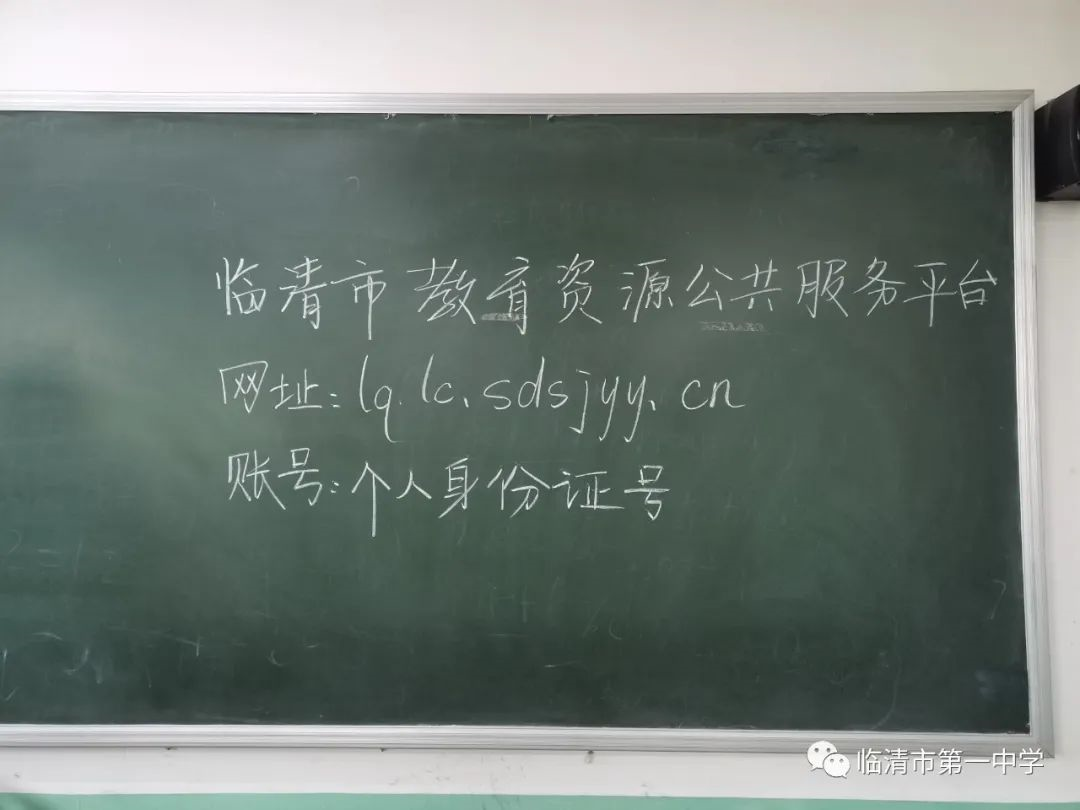 临清市教育资源公共服务平台
网址:lq.lc.sdsjyy.cn
账号:个人身份证号
临清市第一中学